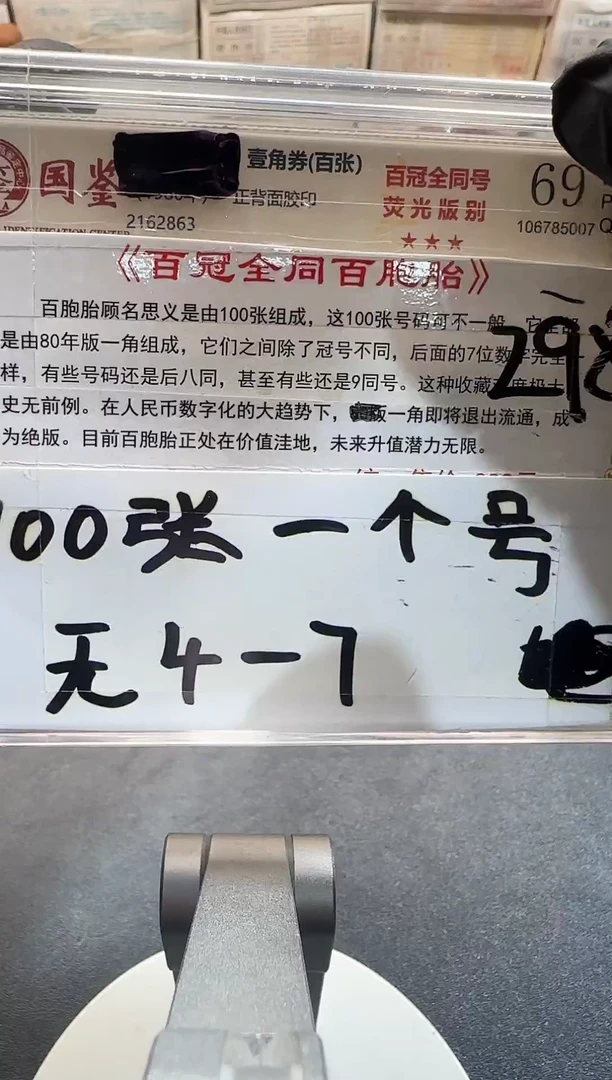 国鉴 壹角券(百张) 百冠全同号 69
正背面胶印 荧光版别
2162863 ★★★ 106785007
《百冠全同百胞胎》
百胞胎顾名思义是由100张组成，这100张号码可不一般
是由80年版一角组成，它们之间除了冠号不同，后面的7位数字完全一
样，有些号码还是后八同，甚至有些还是9同号。这种收藏
史无前例。在人民币数字化的大趋势下，版一角即将退出流通，成
为绝版。目前百胞胎正处在价值洼地，未来升值潜力无限。
298
100张一个号
无4-7